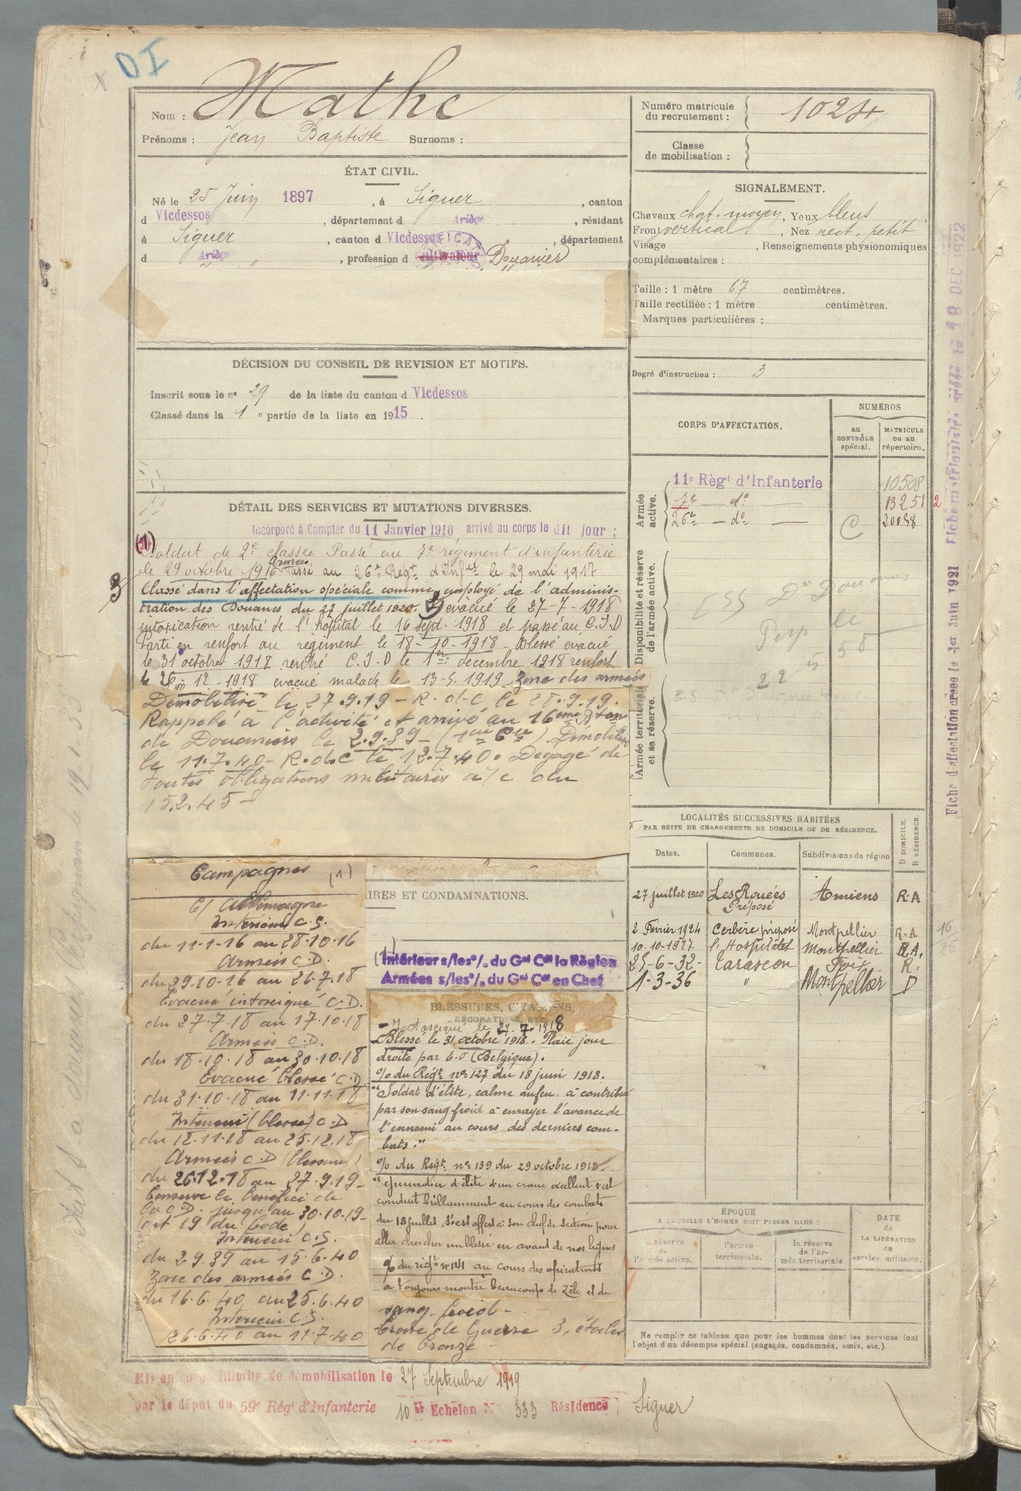 DI
Nom : Mathe
Prénoms : Jean Baptiste Surnoms :
Numéro matricule du recrutement : 1024
Classe de mobilisation :
ÉTAT CIVIL.
Né le 25 Juin 1897, à Siguer, canton
d Vicdessos, département d Ariège, résidant
à Siguer, canton d Vicdessos, département
d Ariège, profession d cultivateur Douanier
SIGNALEMENT.
Cheveux chat. moyen, Yeux bleus
Front vertical, Nez rect. petit
Visage , Renseignements physionomiques
complémentaires :
Taille : 1 mètre 67 centimètres.
Taille rectifiée : 1 mètre centimètres.
Marques particulières :
Degré d'instruction : 3
DÉCISION DU CONSEIL DE REVISION ET MOTIFS.
Inscrit sous le n° 29 de la liste du canton d Vicdessos
Classé dans la 1e partie de la liste en 1915.
CORPS D'AFFECTATION.
NUMÉROS
au contrôle spécial.
MATRICULE ou au répertoire.
Armée active.
11e Régt d'Infanterie 10508
7e — do 13251 2
26e — do — C
Disponibilité et réserve de l'armée active.
Armée territoriale et sa réserve.
DÉTAIL DES SERVICES ET MUTATIONS DIVERSES.
Incorporé à Compter du 11 Janvier 1916 arrivé au corps le dit jour ;
(1)
Soldat de 2e classe Passé au 7e régiment d'infanterie
le 29 octobre 1916 Armées Passé au 26e Régt d'Infie le 29 mai 1917
Classé dans l'affectation spéciale comme employé de l'adminis-
tration des Douanes du 27 juillet 1920. évacué le 27-7-1918
intoxication rentré de l'hôpital le 16 sept. 1918 et passé au C.I.D
Parti en renfort au régiment le 18-10-1918 Blessé évacué
le 31 octobre 1918 rentré C.I.D le 1er décembre 1918 renfort
le 26-12-1918 évacué malade le 13-5-1919 Zone des armées
Démobilisé le 27.9.19 - R.d.C le 28.9.19.
Rappelé à l'activité et arrivé au 16ème Bton
de Douaniers le 2.9.39 - (1ère Cie) Démobilisé
le 11.7.40 - R.d.C le 12.7.40. Dégagé de
toutes obligations militaires à/c du
15.2.45 -
LOCALITÉS SUCCESSIVES HABITÉES
PAR SUITE DE CHANGEMENTS DE DOMICILE OU DE RÉSIDENCE.
Dates. Communes. Subdivisions de région D DOMICILE. R RÉSIDENCE.
27 juillet 1920 Les Rouées Préposé Amiens R.A
2 Février 1924 Cerbère préposé Montpellier R.A
10-10-1927 l'Hospitalet Montpellier R.A.
25-6-32 - Tarascon Foix R.
1-3-36 " Montpellier D
Campagnes (1)
C/ Allemagne
Intérieur C.S.
du 11-1-16 au 28.10.16
Armées C.D.
du 29.10-16 au 26.7.18
Evacué intoxiqué C.D.
du 27.7.18 au 17.10.18
Armées C.D.
du 18.10.18 au 30.10.18
Evacué blessé C.D.
du 31.10.18 au 11.11.18
Intérieur (blessé) C.D
du 12.11.18 au 25.12.18
Armées C.D (blessure)
du 26.12.18 au 27.9.19-
Conserve le bénéfice de
la C.D. jusqu'au 30.10.19-
Intérieur C.S.
du 2.9.39 au 15.6.40
Zone des armées C.D.
du 16.6.40 au 25.6.40
Intérieur C.S.
26.6.40 au 11.7.40
IRES ET CONDAMNATIONS.
Intérieur s/les o/. du Gal Ct la Région
Armées s/les o/. du Gal Ct en Chef
BLESSURES, CITATIONS,
DÉCORATIONS, ETC.
- Intoxiqué le 27.7.1918
Blessé le 31 octobre 1918. Plaie joue
droite par é.o (Belgique).
O/ du Régt no 127 du 18 juin 1918.
"Soldat d'élite, calme au feu, a contribué
par son sang froid à enrayer l'avance de
l'ennemi au cours des derniers com-
bats."
O/ du Régt no 139 du 29 octobre 1918.
d'élite d'un cran excellent s'est
conduit brillamment au cours des combats
du 18 juillet. S'est offert à son chef de section pour
aller chercher un blessé en avant de nos lignes
O/ du régt no 141 au cours des opérations
a toujours montré beaucoup de zèle et de
sang-froid -
Croix de Guerre 3 étoiles
de bronze
ÉPOQUE
À LAQUELLE L'HOMME DOIT PASSER DANS :
la réserve de l'armée active.
l'armée territoriale.
la réserve de l'armée territoriale
DATE de LA LIBÉRATION du service militaire.
Ne remplir ce tableau que pour les hommes dont les services font
l'objet d'un décompte spécial (engagés, condamnés, omis, etc.).
Mis en congé illimité de démobilisation le 27 Septembre 1919
par le dépôt du 59e Régt d'Infanterie 10 Echelon N° 333 Résidence Siguer
Fiche d'affectation créée le 1er Juin 1921